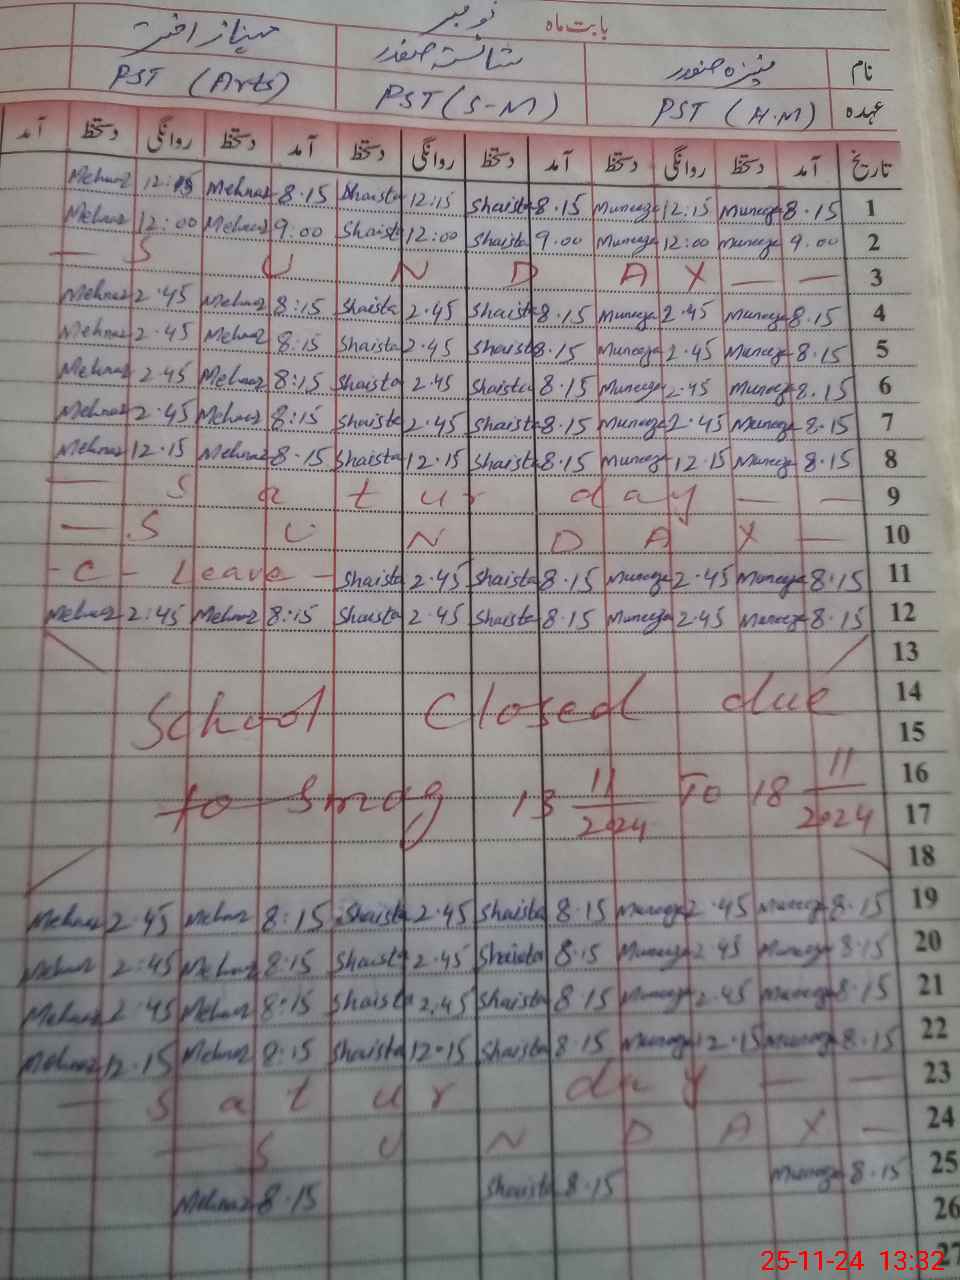 بابت ماہ نومبر
نام منیزہ صفدر شائستہ صفدر مہناز اختر
عہدہ PST (H.M) PST (S-M) PST (Arts)
تاریخ آمد دستخط روانگی دستخط آمد دستخط روانگی دستخط آمد دستخط روانگی دستخط آمد
1 8.15 Muneeza 12:15 Muneeza 8.15 Shaista 12:15 Shaista 8.15 Mehnaz 12:15 Mehnaz
2 9.00 Muneeza 12:00 Muneeza 9.00 Shaista 12:00 Shaista 9:00 Mehnaz 12:00 Mehnaz
3 — S U N D A Y — —
4 8.15 Muneeza 2.45 Muneeza 8.15 Shaista 2.45 Shaista 8:15 Mehnaz 2.45 Mehnaz
5 8.15 Muneeza 2.45 Muneeza 8.15 Shaista 2.45 Shaista 8:15 Mehnaz 2.45 Mehnaz
6 8.15 Muneeza 2.45 Muneeza 8.15 Shaista 2.45 Shaista 8:15 Mehnaz 2.45 Mehnaz
7 8.15 Muneeza 2.45 Muneeza 8.15 Shaista 2.45 Shaista 8:15 Mehnaz 2.45 Mehnaz
8 8.15 Muneeza 12.15 Muneeza 8.15 Shaista 12.15 Shaista 8.15 Mehnaz 12.15 Mehnaz
9 — S a t u r d a y — —
10 — S U N D A Y —
11 8.15 Muneeza 2.45 Muneeza 8.15 Shaista 2.45 Shaista - C - Leave -
12 8.15 Muneeza 2.45 Muneeza 8.15 Shaista 2.45 Shaista 8:15 Mehnaz 2:45 Mehnaz
13
14 School Closed due
15
16 to Smog 13 11/2024 To 18 11/2024
17
18
19 8.15 Muneeza 2.45 Muneeza 8.15 Shaista 2.45 Shaista 8:15 Mehnaz 2.45 Mehnaz
20 8.15 Muneeza 2.45 Muneeza 8.15 Shaista 2.45 Shaista 8.15 Mehnaz 2:45 Mehnaz
21 8.15 Muneeza 2.45 Muneeza 8.15 Shaista 2.45 Shaista 8:15 Mehnaz 2.45 Mehnaz
22 8.15 Muneeza 12.15 Muneeza 8.15 Shaista 12.15 Shaista 8:15 Mehnaz 12.15 Mehnaz
23 — S a t u r d a y — —
24 — — S U N D A Y —
25 8.15 Muneeza 8.15 Shaista 8.15 Mehnaz
26
27
25-11-24 13:32